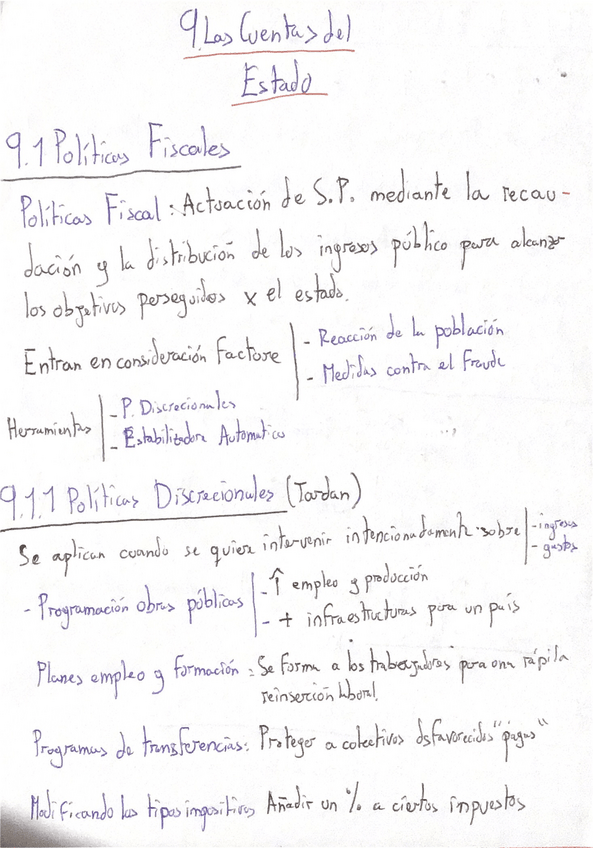 9. Las Cuentas del
Estado
9.1 Políticas Fiscales
Políticas Fiscal: Actuación de S.P. mediante la recau-
dación y la distribución de los ingresos público para alcanzar
los objetivos perseguidos x el estado.
Entran en consideración Factore
- Reacción de la población
- Medidas contra el Fraude
Herramientas
- P. Discrecionales
- Estabilizadore Automatico
9.1.1 Políticas Discrecionales (Tardan)
Se aplican cuando se quiere intervenir intencionadamente sobre
- ingresos
- gastos
- Programación obras públicas
- ↑ empleo y producción
- + infraestructuras para un país
Planes empleo y formación: Se forma a los trabajadores para una rápida
reinserción laboral.
Programas de transferencias: Proteger a colectivos dsfavorecidos "pagas"
Modificando los tipos impositivos Añadir un % a ciertos impuestos